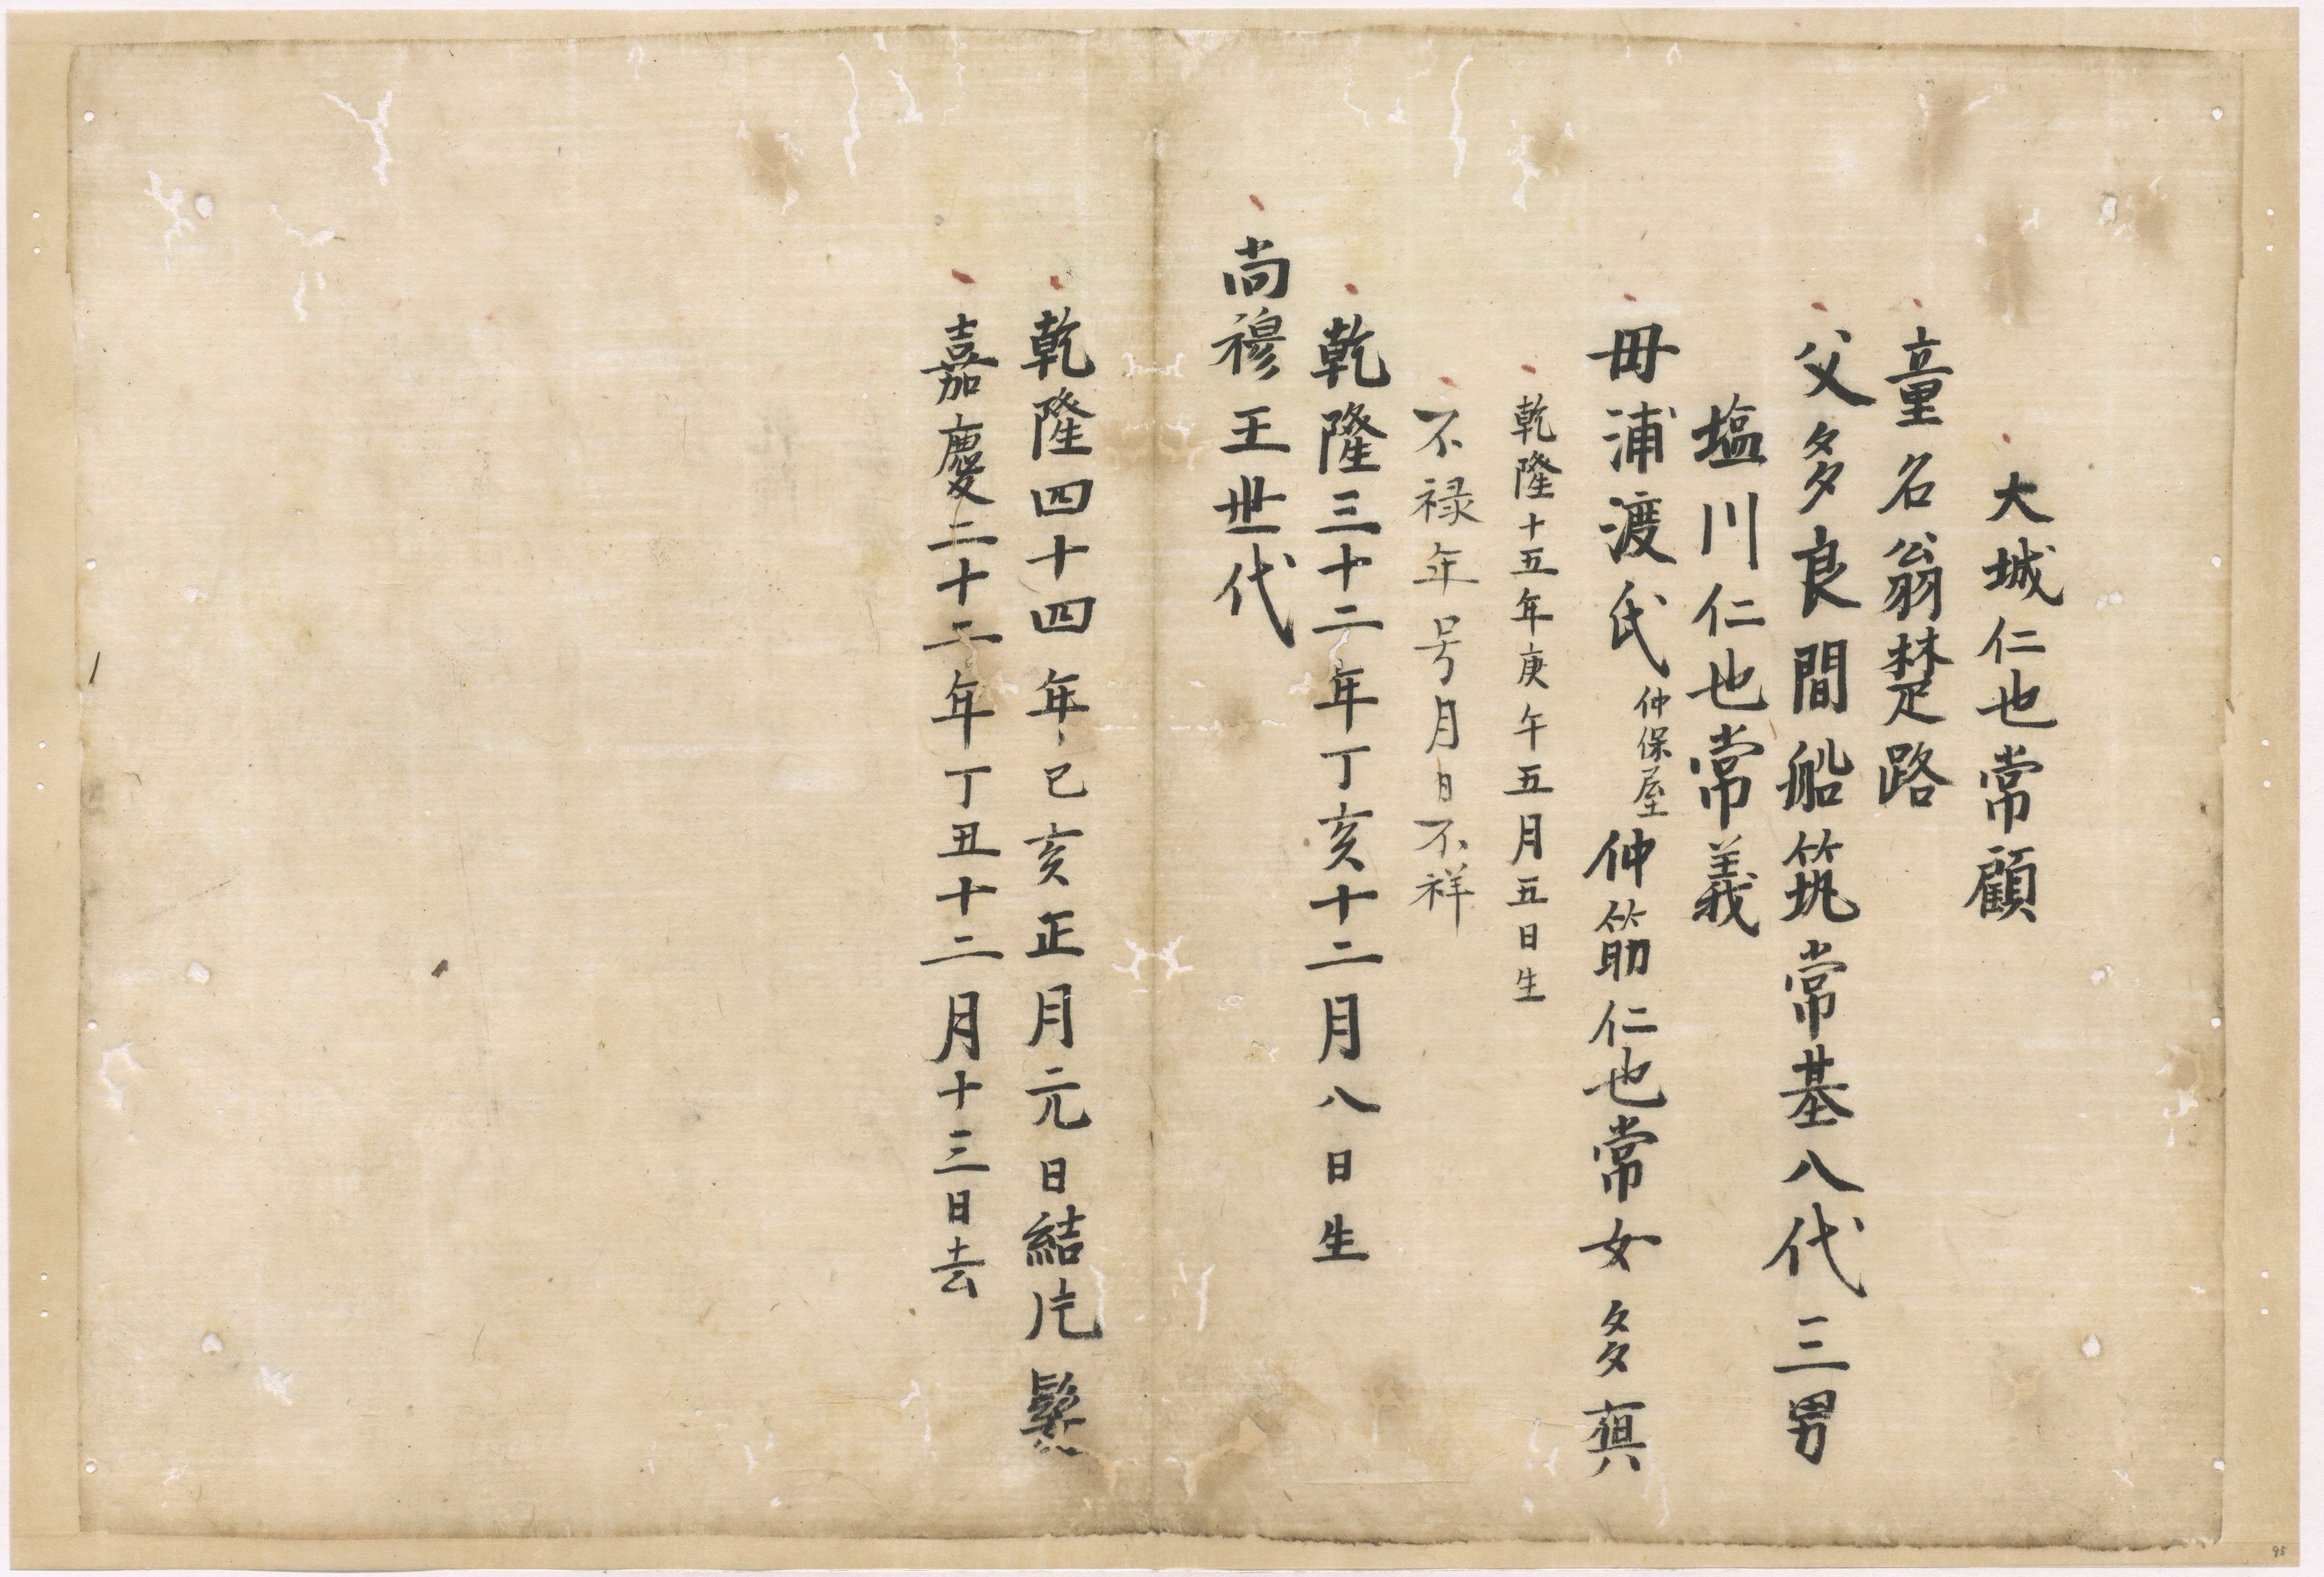 大城仁也常顧
童名翁楚路
父多良間船筑常基八代三男
塩川仁也常義
母浦渡氏仲保屋仲筋仁也常女多真
乾隆十五年庚午五月五日生
不禄年号月日不祥
乾隆三十二年丁亥十二月八日生
尚穆王世代
乾隆四十四年己亥正月元日結片髻
嘉慶二十二年丁丑十二月十三日去
95